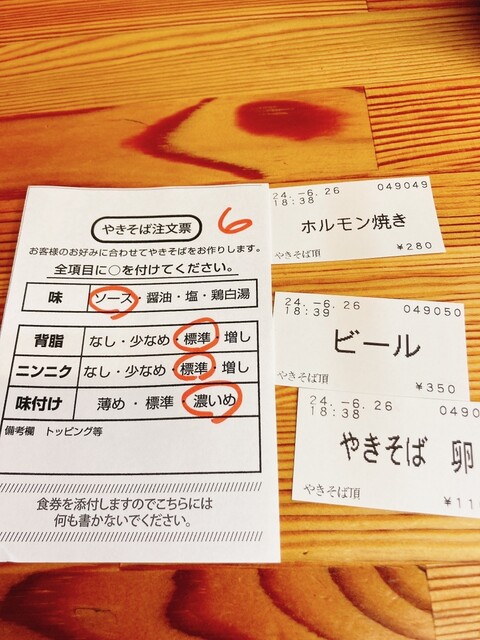 やきそば注文票
6
お客様のお好みに合わせてやきそばをお作りします。
全項目に○を付けてください。
味 ソース・醤油・塩・鶏白湯
背脂 なし・少なめ・標準・増し
ニンニク なし・少なめ・標準・増し
味付け 薄め・標準・濃いめ
備考欄 トッピング等
食券を添付しますのでこちらには
何も書かないでください。
24.-6.26 049049
18:38
ホルモン焼き
やきそば頂 ¥280
24.-6.26 049050
18:39
ビール
やきそば頂 ¥350
24.-6.26 0490
18:38
やきそば 卵
やきそば頂